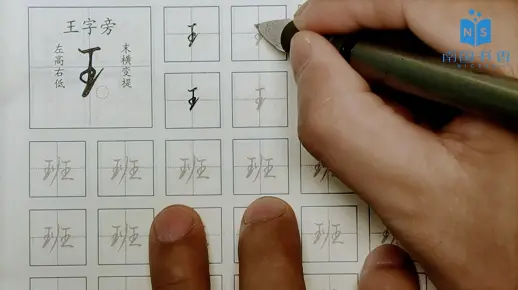 王字旁
左高右低
王
末横变提
王
王
王
班 班 班 班 班
班 班 班 班 班
NS